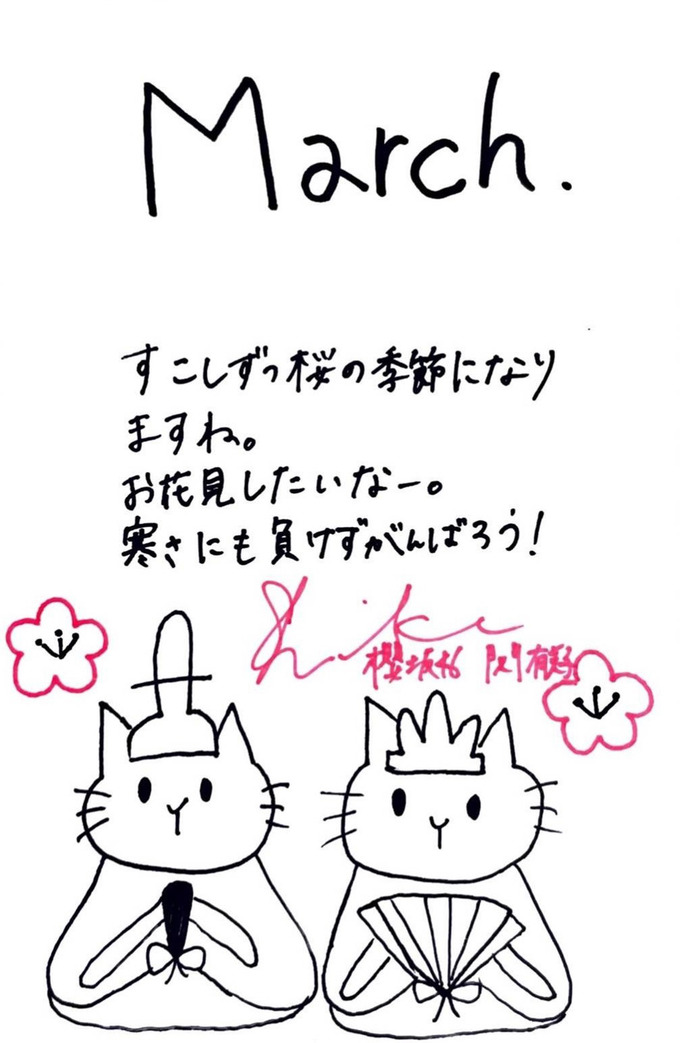 March.
すこしずつ桜の季節になり
ますね。
お花見したいなー。
寒さにも負けずがんばろう！
櫻坂46 関有美子